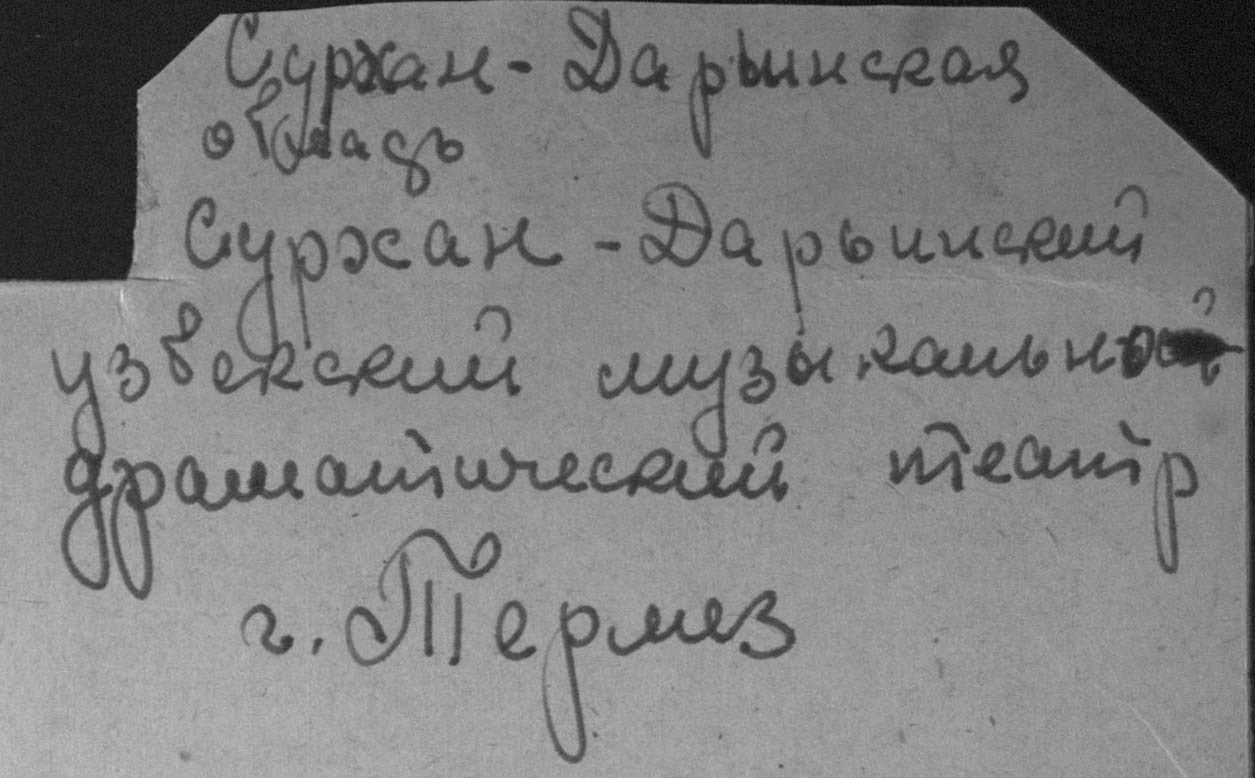 Сурхан-Дарьинская
область
Сурхан-Дарьинский
узбекский музыкальный
драматический театр
г. Термез